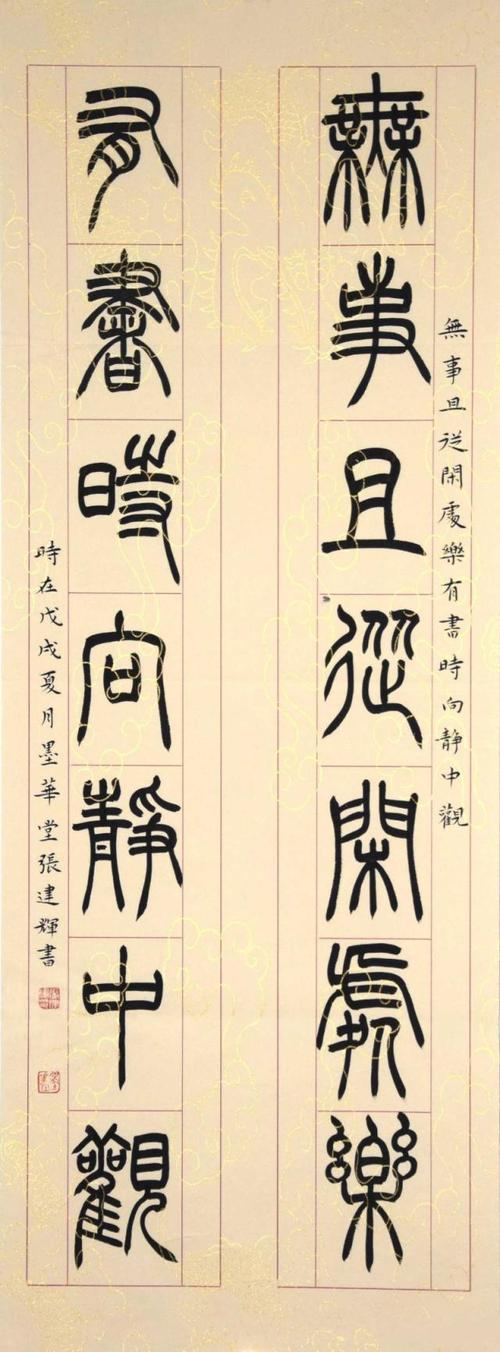 無事且從閒處樂
有書時向靜中觀
無事且從閒處樂有書時向靜中觀
時在戊戌夏月墨華堂張建輝書